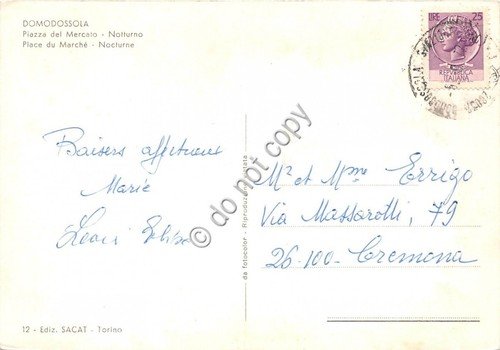 DOMODOSSOLA
Piazza del Mercato - Notturno
Place du Marché - Nocturne
LIRE 25
REPVBBLICA
ITALIANA
Baisers affectueux
Marie
do not copy
da fotocolor - Riproduzione vietata
M² et Mme Errigo
Via Massarotti, 79
26-100-Cremona
12 - Ediz. SACAT - Torino